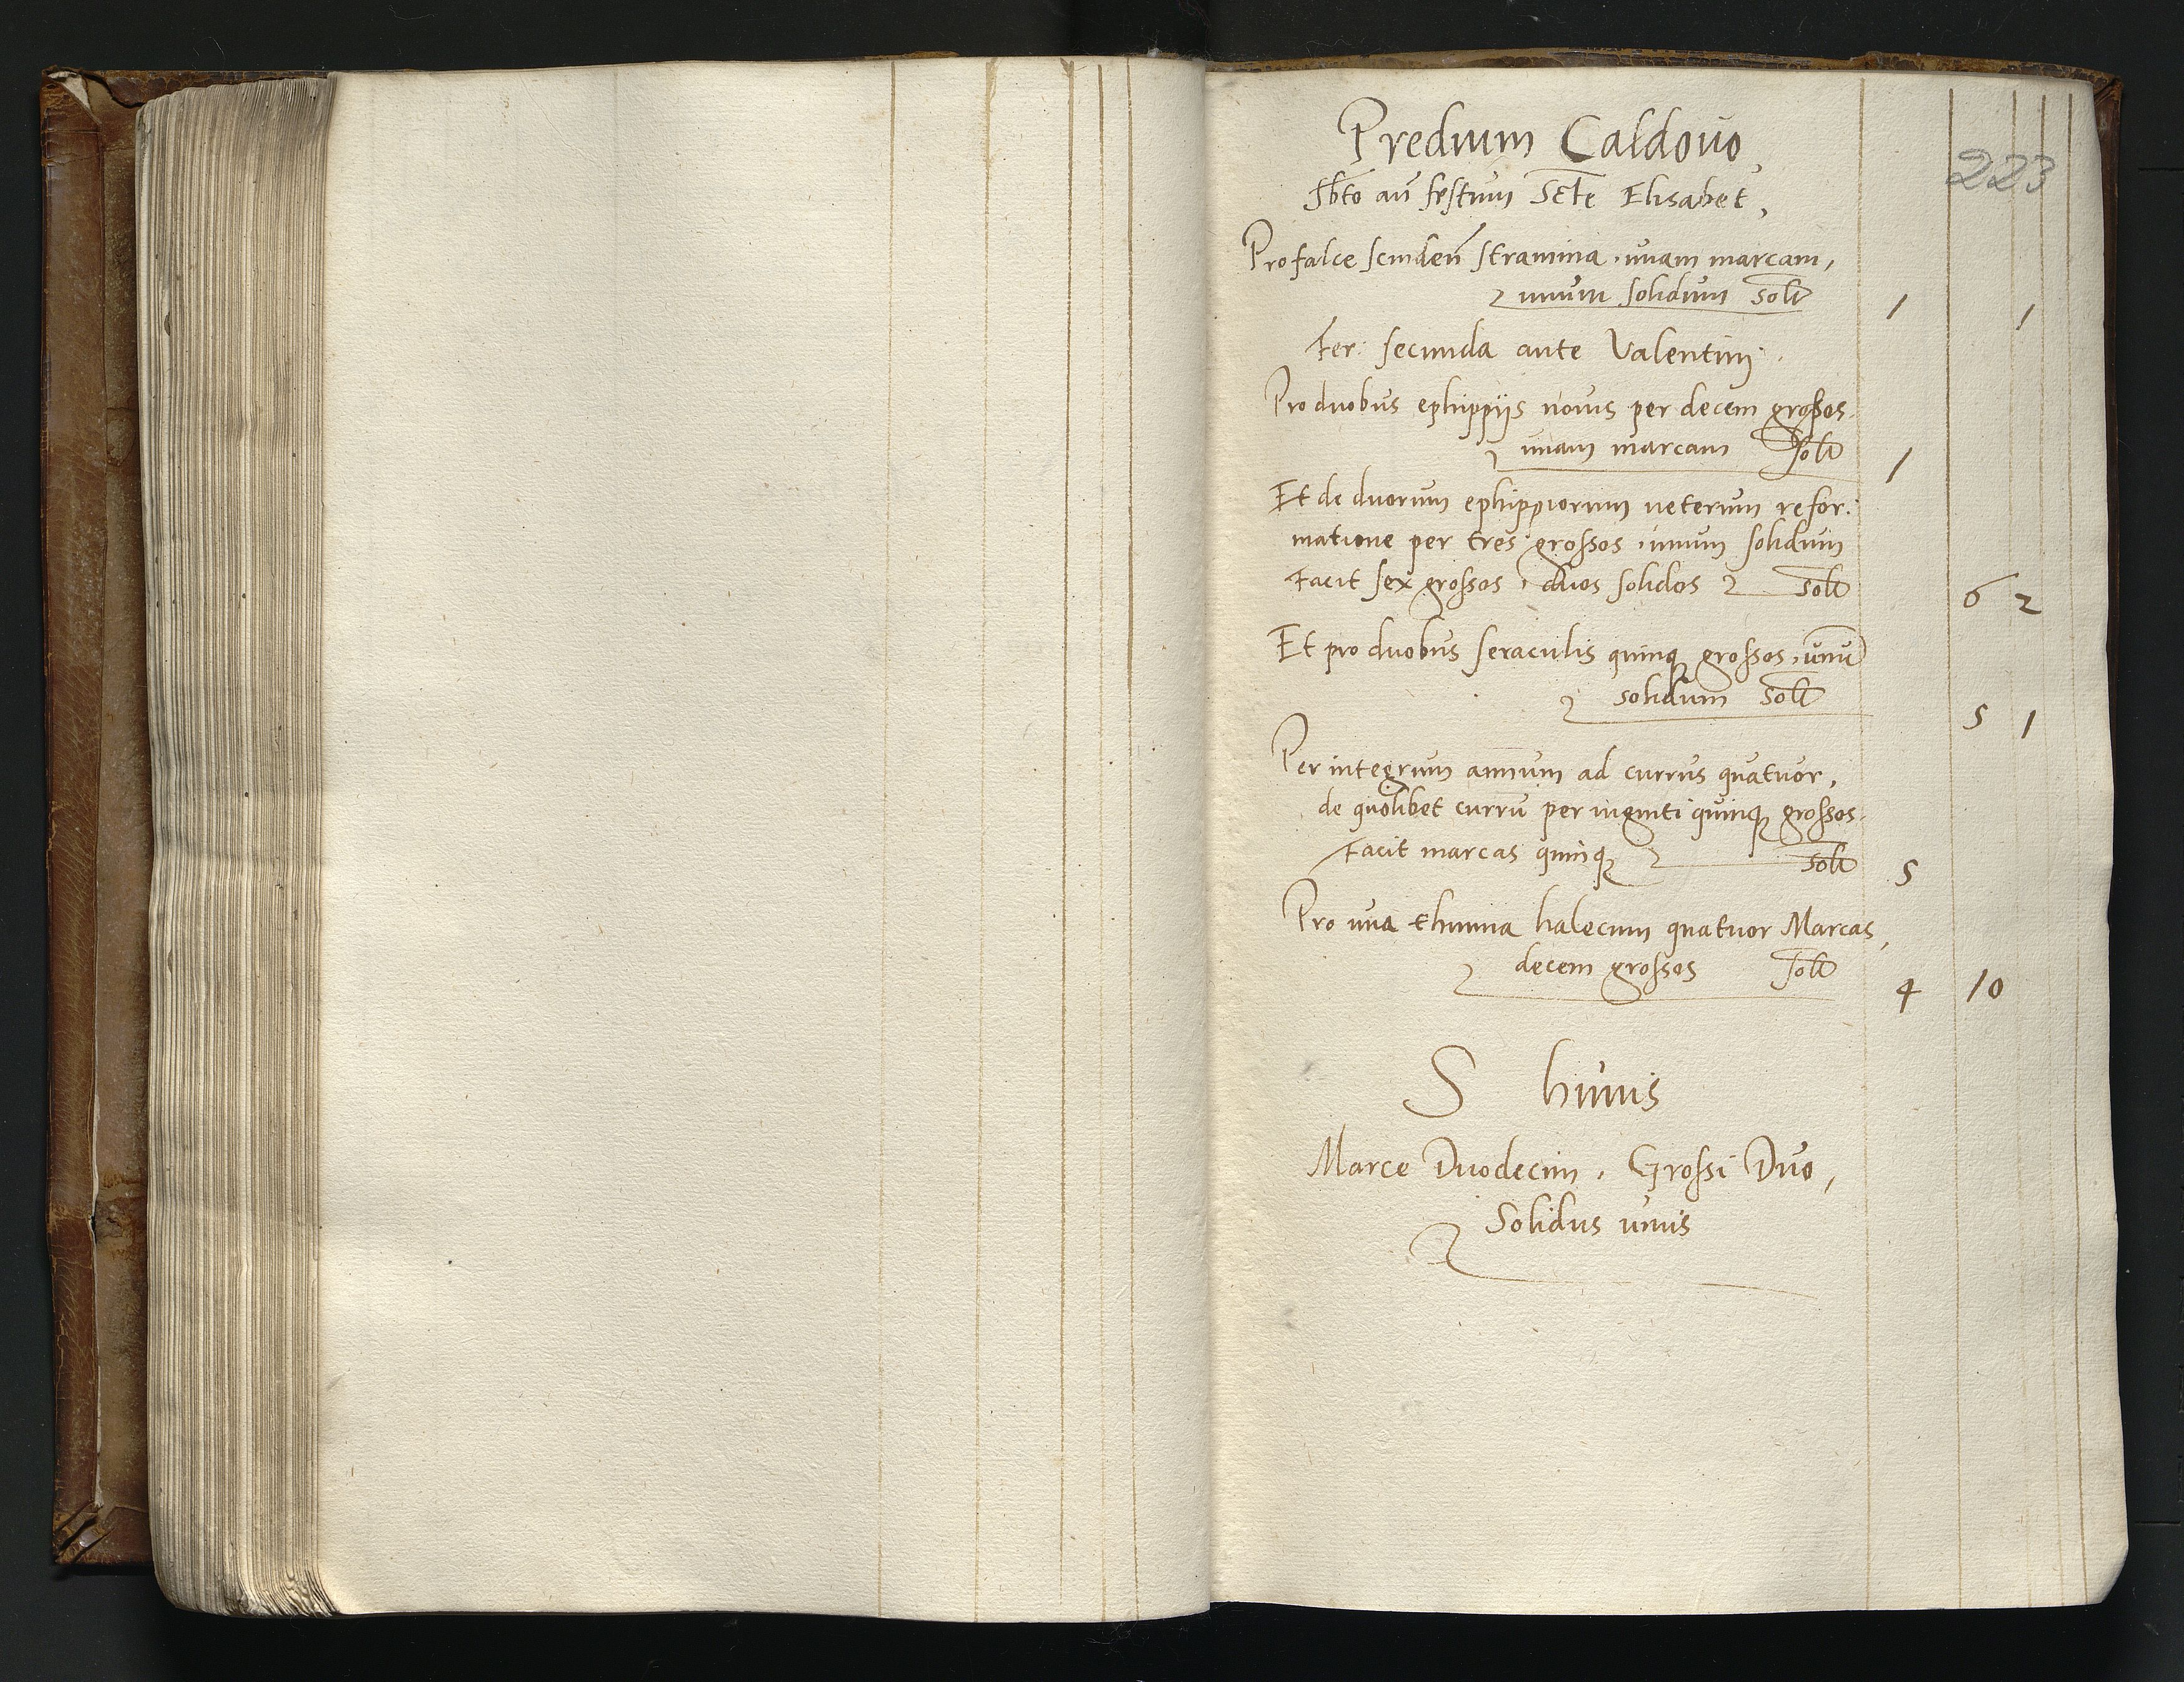 Predium Caldovo
223
Sbto añ festum Scte Elisabet,
Pro falce scinden̄ stramina, unam marcam,
unum solidum solt
1 1
Fer: secunda ante Valentini.
Pro duobus ephippijs novis per decem grossos.
unam marcam solt
1
Et de duorum ephippiorum veterum refor:
matione per tres grossos, unum solidum
Facit sex grossos, duos solidos solt
6 2
Et pro duobus seraculis quinq grossos, unū
solidum solt
5 1
Per integrum annum ad currus quatuor,
de quolibet currū per viginti quinq grossos.
Facit marcas quinq solt
5
Pro una thunna halecum quatuor Marcas,
decem grossos solt
4 10
S huius
Marce Duodecim, Grossi Duo,
Solidus unus